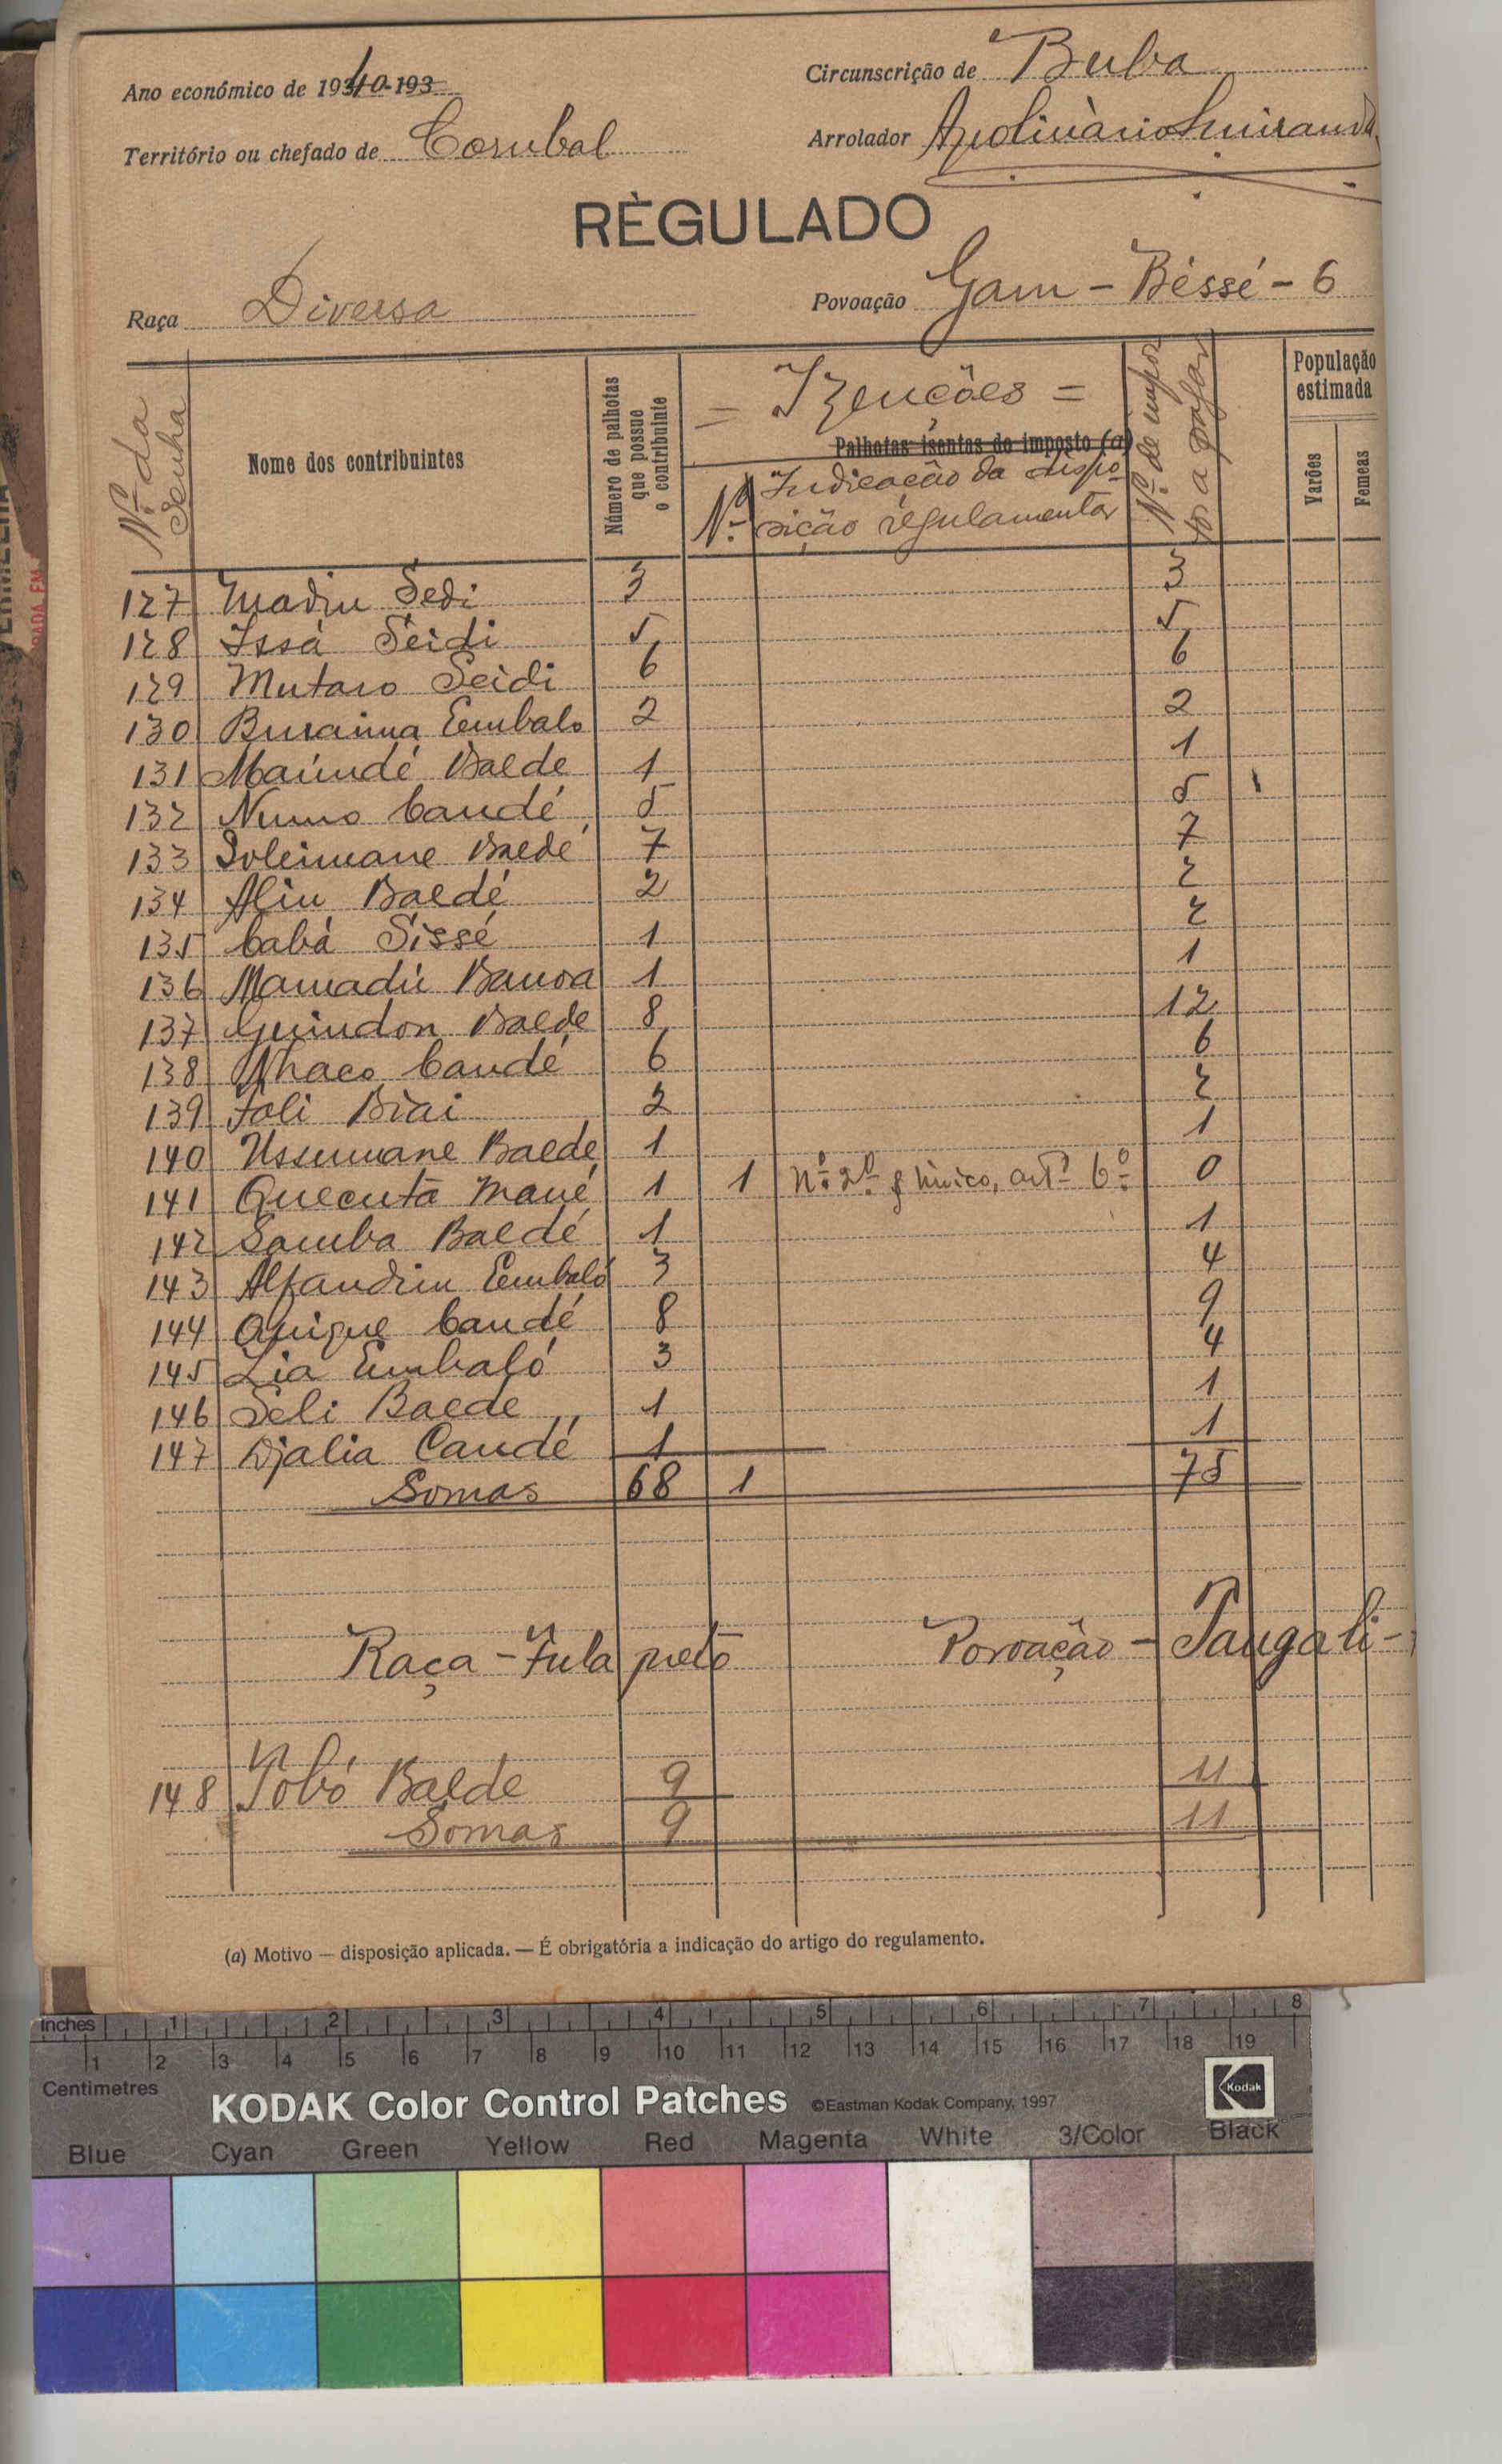 Ano económico de 1940-193
Circunscrição de Buba
Território ou chefado de Corubal
Arrolador Apolinàrio Lmiranda
RÈGULADO
Raça Diversa
Povoação Gam - Béssé - 6
Nº da Senha
Nome dos contribuintes
Número de palhotas que possue o contribuinte
= Izenções =
Palhotas isentas do imposto (a)
Nº
Indicação da disposição regulamentar
Nº de impostos a pagar
População estimada
Varões
Femeas
127 Madiu Sedi 3 3
128 Issá Seidi 5 5
129 Mutaro Seidi 6 6
130 Buraima Embalo 2 2
131 Maúndé Balde 1 1
132 Numo Candé 5 5
133 Soleimane Baldé 7 7
134 Aliu Baldé 2 2
135 Cabá Sissé 1 2
136 Mamadú Banora 1 1
137 Guindon Balde 8 12
138 Nhaco Candé 6 6
139 Foli Biai 2 2
140 Ussumane Baldé 1 1
141 Quecuta Mané 1 1 nº 2º § único, artº 6º 0
142 Samba Baldé 1 1
143 Alfandim Embaló 3 4
144 Quique Candé 8 9
145 Lia Embaló 3 4
146 Seli Balde 1 1
147 Djalia Candé 1 1
Somas 68 1 75
Raça - Fula preto
Povoação - Tangali -
148 Tobó Balde 9 11
Somas 9 11
(a) Motivo — disposição aplicada. — É obrigatória a indicação do artigo do regulamento.
Inches 1 2 3 4 5 6 7 8
1 2 3 4 5 6 7 8 9 10 11 12 13 14 15 16 17 18 19
Centimetres
KODAK Color Control Patches ©Eastman Kodak Company, 1997
Kodak
Blue Cyan Green Yellow Red Magenta White 3/Color Black